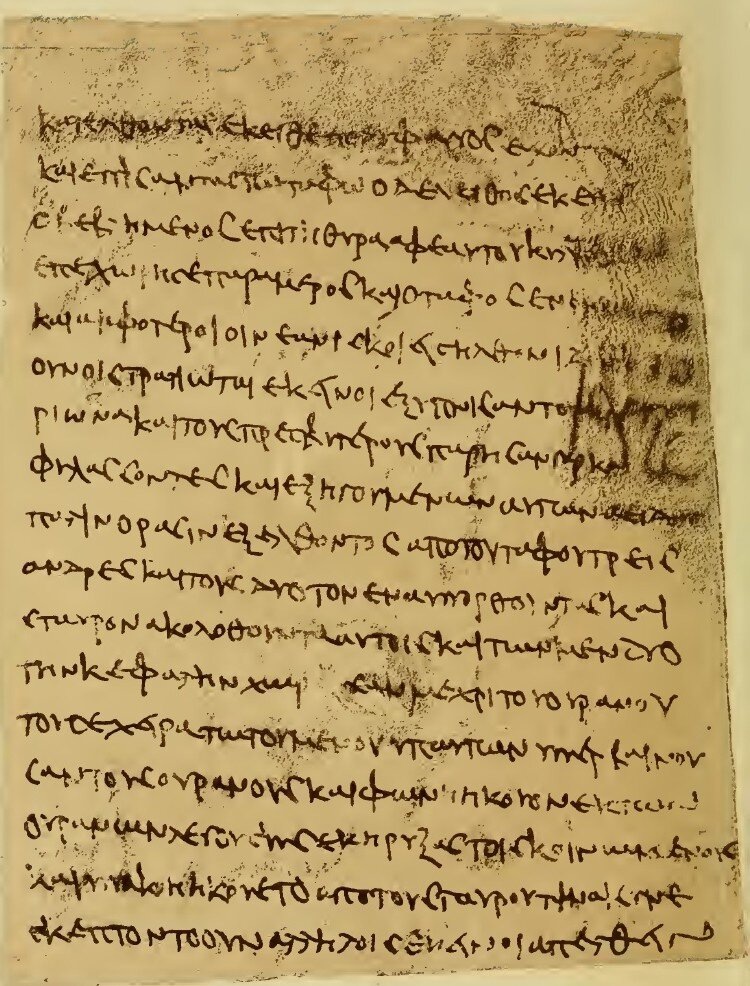 καιελθοντας εκειθε πολυ φεγγος εχοντας
και εγγισαντας τω ταφω ο δε λειθος εκει
ος βεβλημενος επι τη θυρα αφ εαυτου κυ
επεχωρησε παρα μερος και ο ταφος εν
και αμφοτεροι οι νεανισκοι εισηλθον ι
ουν οι στρατιωται εκεινοι εξυπνισαν το
ριωνα και τους πρεσβυτερους παρησαν γαρ και
φυλασσοντες και εξηγουμενων αυτων α ειδον
παλιν ορασιν εξελθοντος απο του ταφου τρεις
ανδρες και τους δυο τον ενα υπορθουντας και
σταυρον ακολοθουντα αυτοις και των μεν δυο
την κεφαλην χωρ σαν μεχρι του ουρανου
του δε χειρατωτουμενου υπ αυτων υπερβαινου
σαν τους ουρανους και φωνη ηκουον εκ των
ουρανων λεγουσης εκηρυξας τοις κοινωμενοις
και υπακοη ηκουετο απο του σταυρου τιναι συνε
σκεπτοντο ουν αλληλοις εκεινοι απελθειν